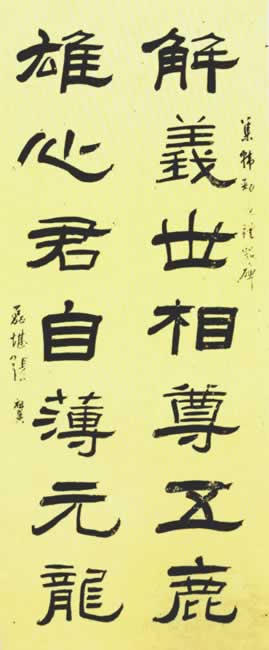 集韓勑禮器碑
解義世相尊五鹿
雄心君自薄元龍
磊堪張祖翼